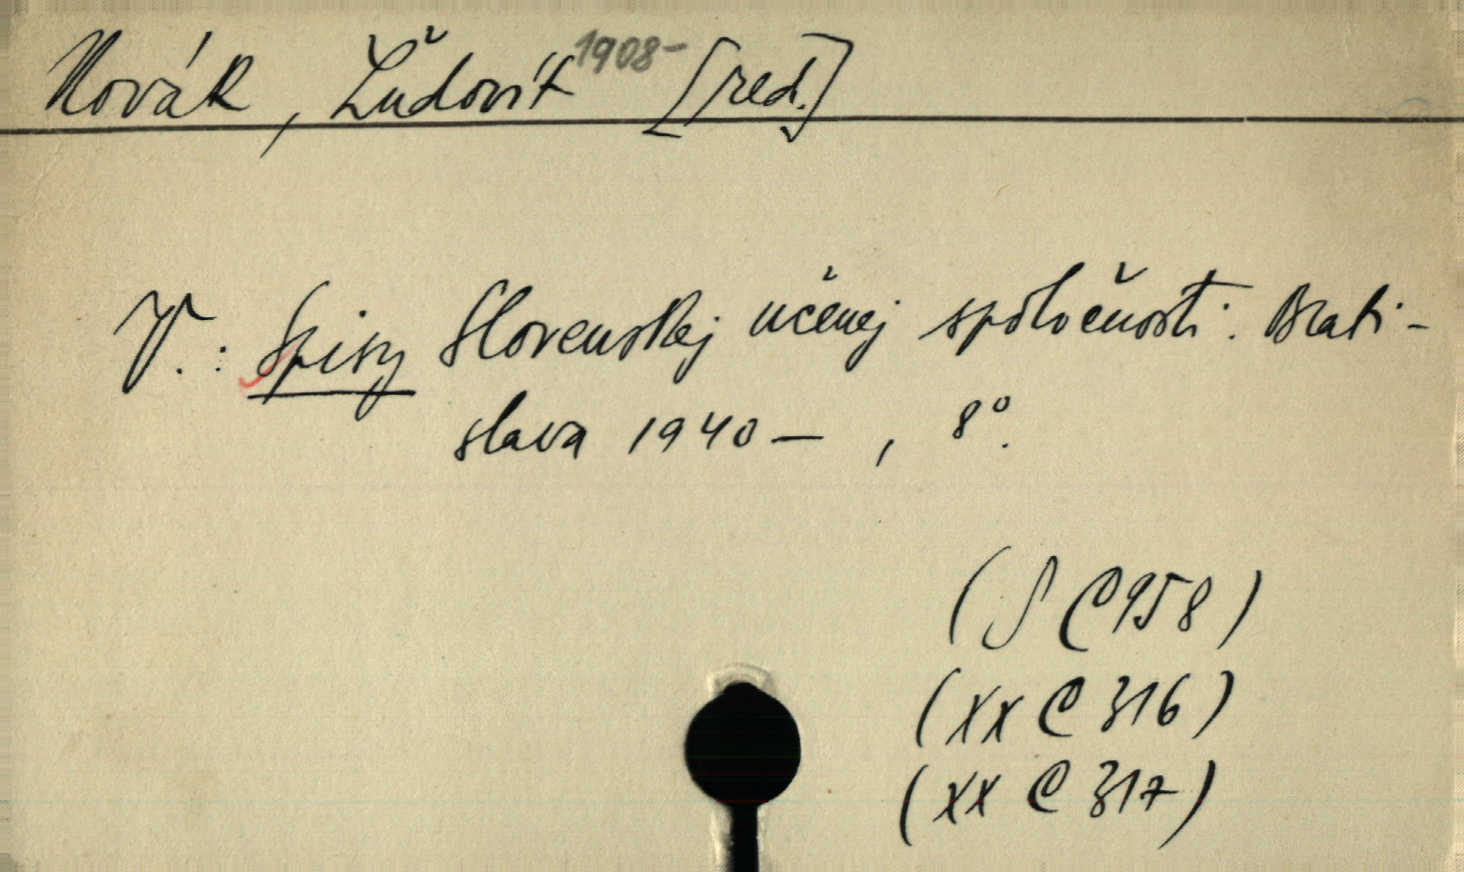 Novák, Ľudovít 1908- [red.]
V.: Spisy Slovenskej učenej spoločnosti. Brati-
slava 1940- , 8°.
(S C 958)
(XX C 316)
(XX C 317)